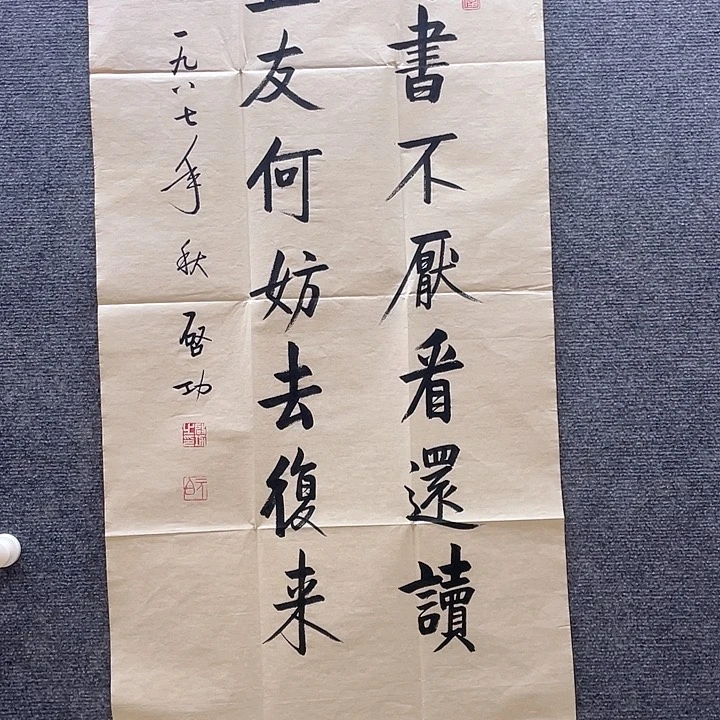 書不厭看還讀
友何妨去復来
一九八七年秋 啓功